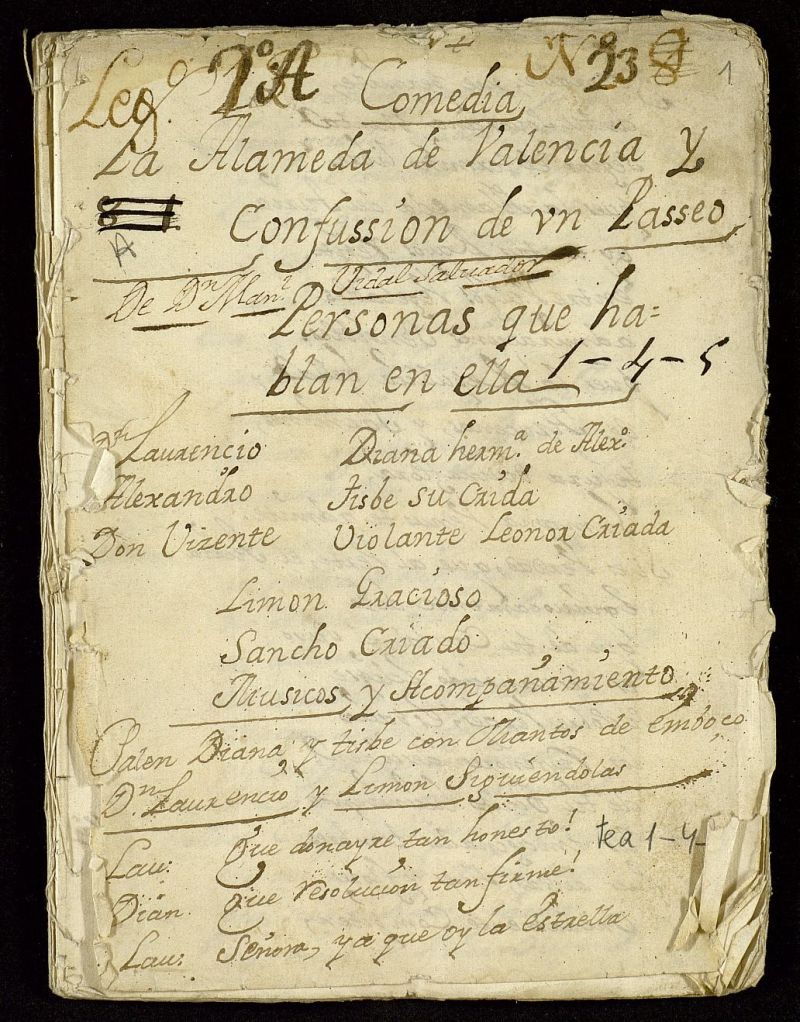 Leg.º 2º A Nº 23 1
Comedia
La Alameda de Valencia y
Confussion de vn Passeo
A
De Dn Manl Vidal Salvador
Personas que ha=
blan en ella 1-4-5
Dn Laurencio Diana herm.ª de Alex.º
Alexandro tisbe su Crida
Don Vizente Violante Leonor Criada
Limon Gracioso
Sancho Criado
Musicos y Acompañamiento
Salen Diana y tisbe con Mantos de emboço
Dn Laurencio y Limon Siguiendolas
Lau: Que donayre tan honesto! tea 1-4-
Dian Que resolucion tan firme!
Lau: Señora, ya que oy la estrella